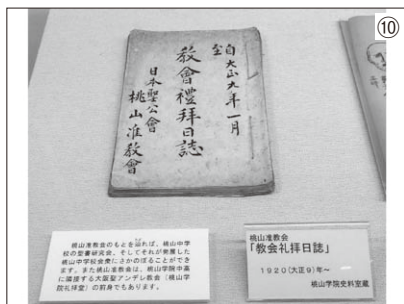 ⑩
自大正九年一月
至
教會禮拜日誌
日本聖公會
桃山准教會
桃山准教会のもとを辿れば、桃山中学
校の聖書研究会、そしてそれが発展した
桃山中学校会衆にさかのぼることができ
ます。また桃山准教会は、桃山学院中高
に隣接する大阪聖アンデレ教会（桃山学
院礼拝堂）の前身でもあります。
桃山准教会
「教会礼拝日誌」
1920（大正9）年～
桃山学院史料室蔵